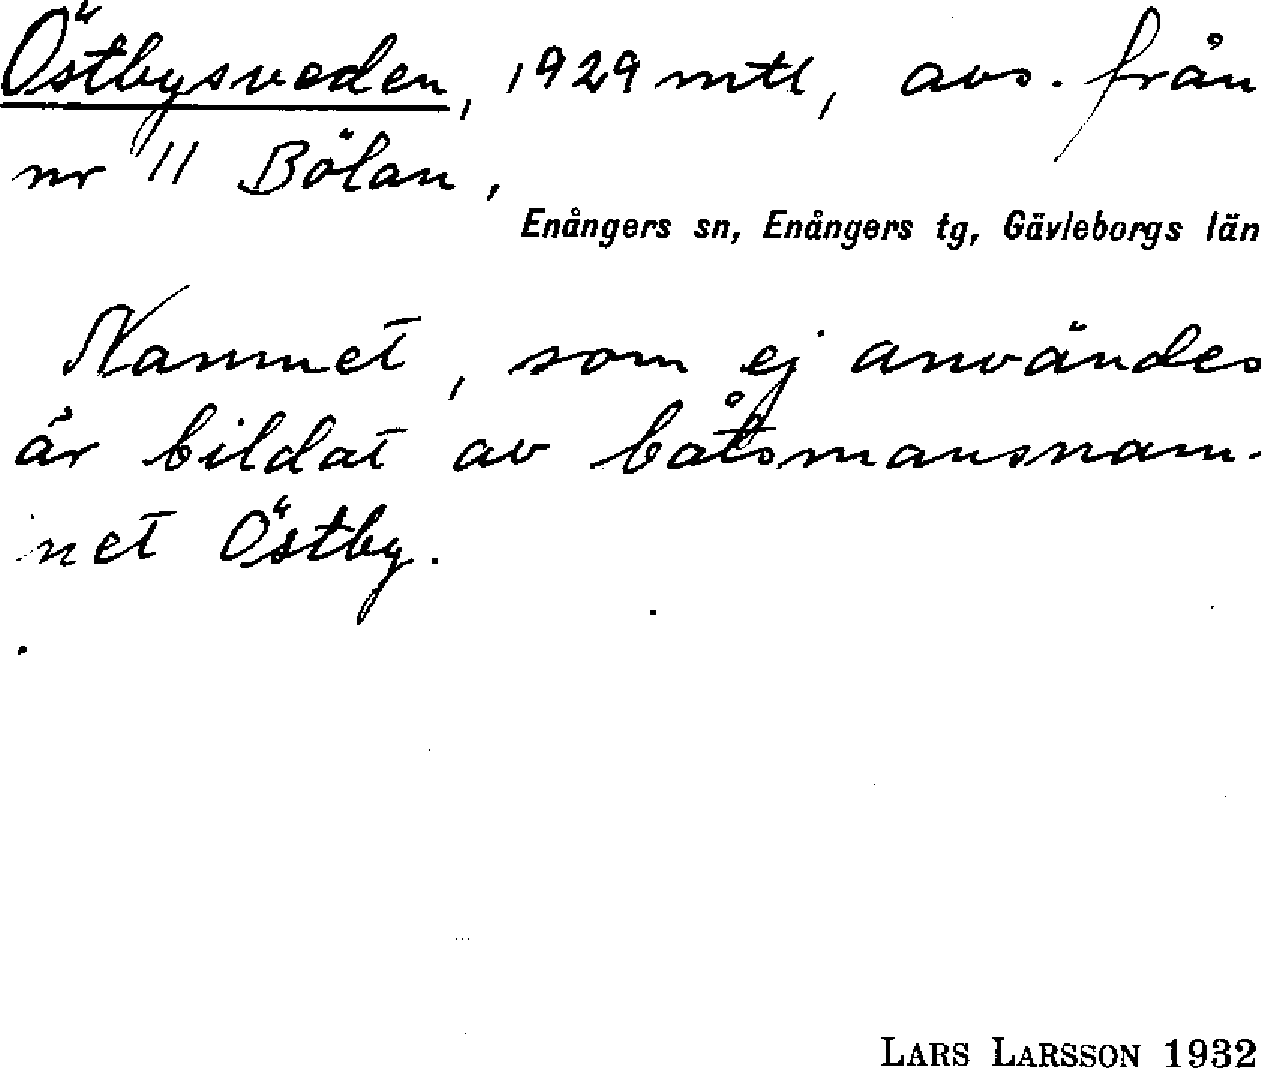 Östbysveden, 1929 mtl, avs. från
nr 11 Bölan,
Enångers sn, Enångers tg, Gävleborgs län
Namnet, som ej användes
är bildat av båtsmansnam-
net Östby.
LARS LARSSON 1932